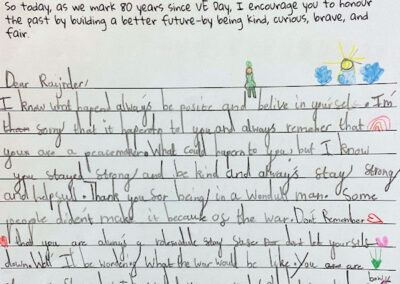 So today, as we mark 80 years since VE Day, I encourage you to honour
the past by building a better future-by being kind, curious, brave, and
fair.
Dear Rajinder,
I know what hapend always be positie and belive in yourself. I'm
sorry that it hapend to you and always remeber that
you are a peacemaker. What could hapen to you, but I know
you stayed strong and be kind and always stay strong
and helpsul. Thank you for being in a man. Some
people dident make it because of the war. Don't Remember
that you are always a stay dont let yourself
down. Well I'd be wondering what the war would be like. You are